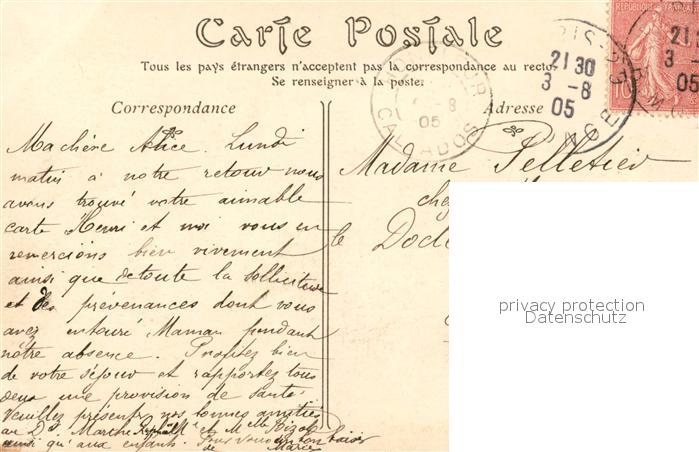 Carte Postale
Tous les pays étrangers n'acceptent pas la correspondance au recto.
Se renseigner à la poste.
Correspondance
Adresse
RÉPUBLIQUE FRANÇAISE
10
21 30
3 -8
05
21
3 -
05
-8
05
CALVADOS
Ma chère Alice. Lundi
matin à notre retour nous
avons trouvé votre aimable
carte Henri et moi vous en
remercions bien vivement
ainsi que de toute la sollicitude
et des prévenances dont vous
avez entouré Maman pendant
nôtre absence. Profitez bien
de votre séjour et rapportez tous
deux une provision de santé
Veuillez présenter nos bonnes amitiés
au Dr Marthe et Melle
ainsi qu'aux enfants. Pour vous un bon baiser
de Marie
Madame Pelletier
chez
le Docte
privacy protection
Datenschutz